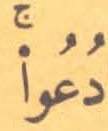 دُعُواْۚ